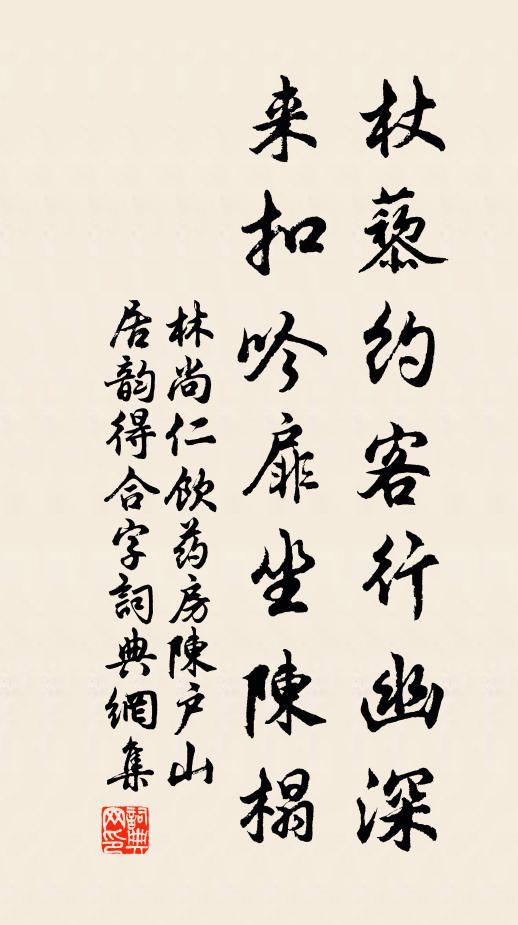 杖藜约客行幽深
来扣吟扉坐陳榻
林尚仁饮药房陳户山
居韵得合字詞典網集
詞典网印